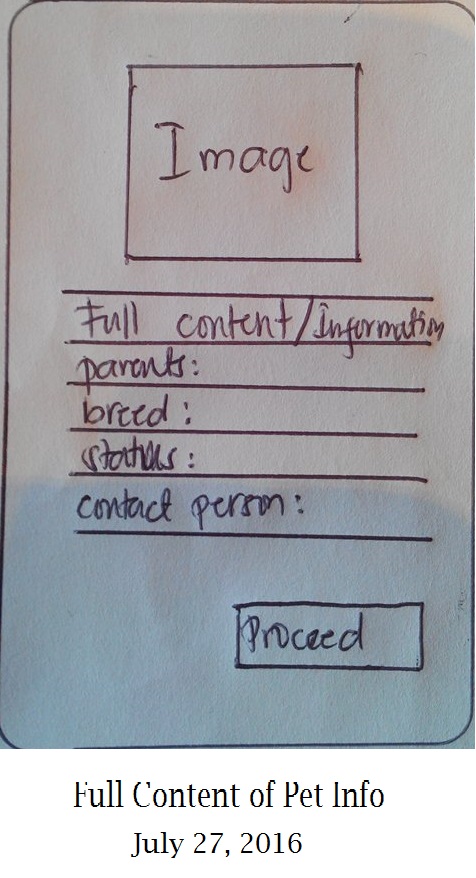 Image
Full content/Information
parents:
breed:
status:
contact person:
Proceed
Full Content of Pet Info
July 27, 2016